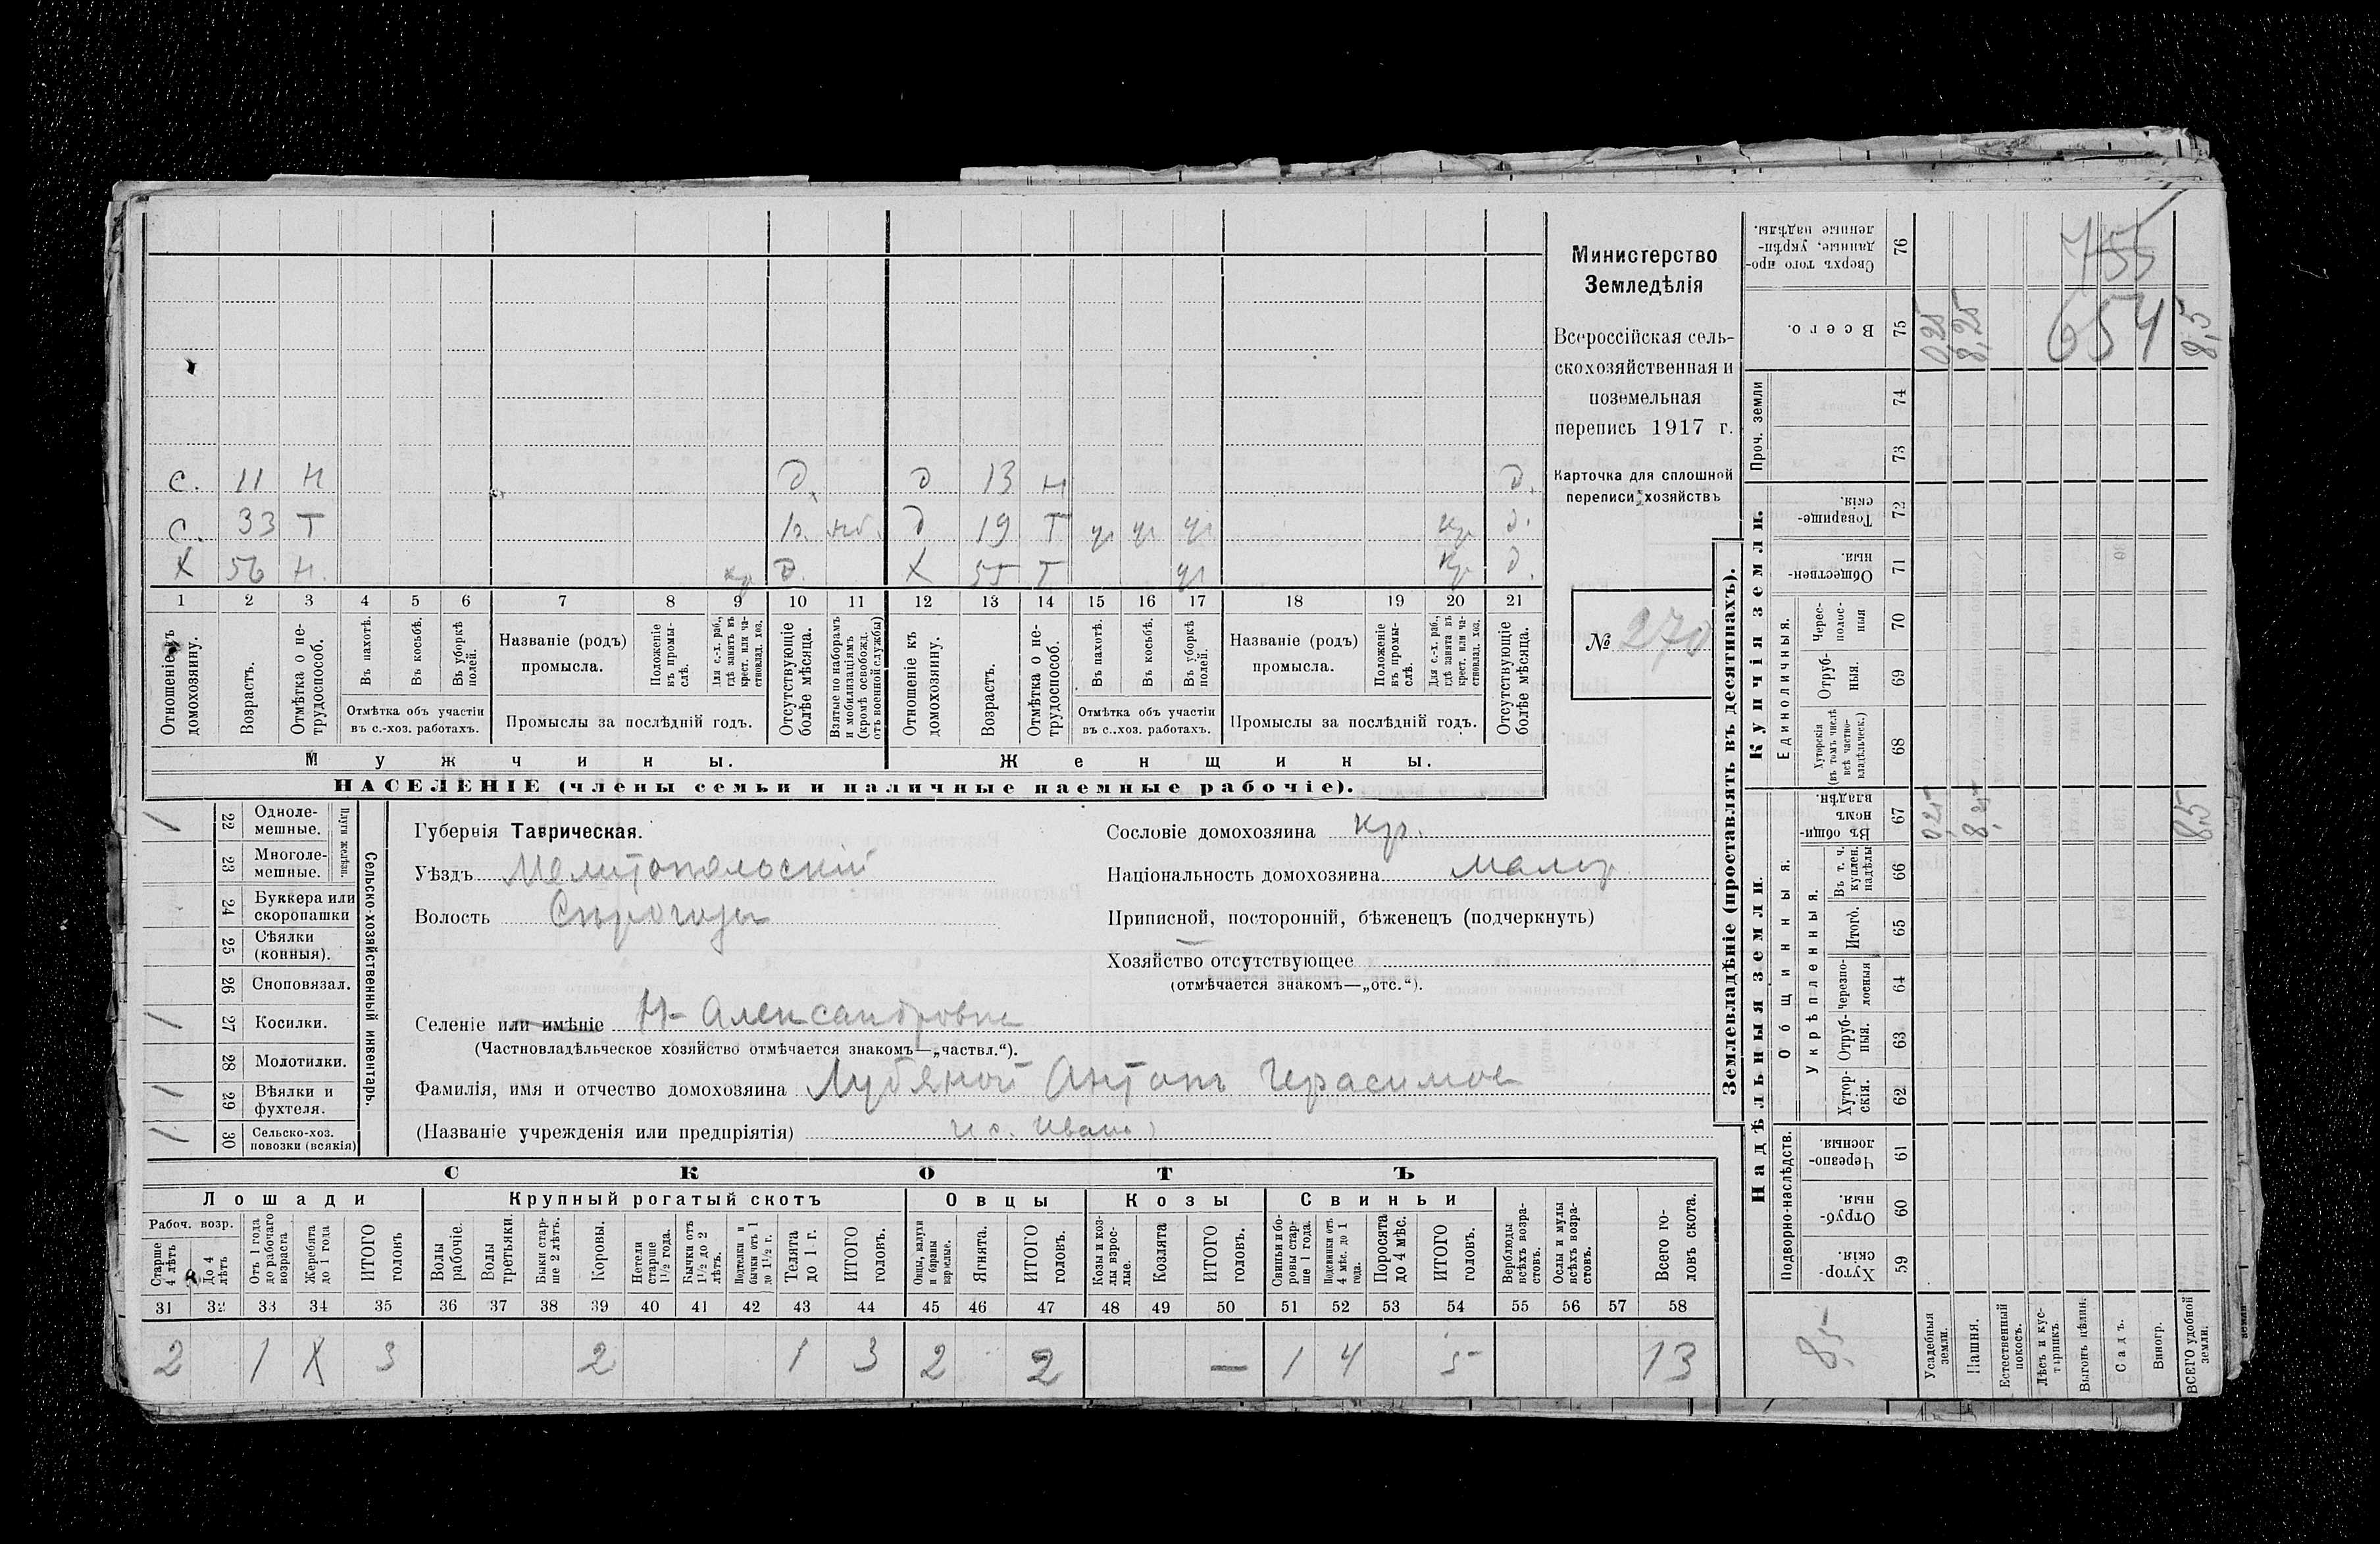 Министерство
Земледѣлія
Всероссійская сель-
скохозяйственная и
поземельная
перепись 1917 г.
Карточка для сплошной
переписи хозяйствъ
№ 270
с. 11 Н д. д 13 н д.
с. 33 Т в. нб. д 19 Т уч уч уч кр д.
Х 56 н. кр д. Х 55 Т уч кр д.
1 2 3 4 5 6 7 8 9 10 11 12 13 14 15 16 17 18 19 20 21
Отношеніе къ домохозяину.
Возрастъ.
Отмѣтка о не-трудоспособ.
Въ пахотѣ.
Въ косьбѣ.
Въ уборкѣ полей.
Отмѣтка объ участіи
въ с.-хоз. работахъ.
Названіе (родъ)
промысла.
Положеніе въ промы-слѣ.
Для с.-х. раб., гдѣ занятъ въ крест. или ча-стновлад. хоз.
Промыслы за послѣдній годъ.
Отсутствующіе болѣе мѣсяца.
Взятые по наборамъ и мобилизаціямъ (кромѣ освобожд. отъ военной службы)
Отношеніе къ домохозяину.
Возрастъ.
Отмѣтка о не-трудоспособ.
Въ пахотѣ.
Въ косьбѣ.
Въ уборкѣ полей.
Отмѣтка объ участіи
въ с..хоз. работахъ.
Названіе (родъ)
промысла.
Положеніе въ промы-слѣ.
Для с.-х. раб., гдѣ занята въ крест. или ча-стновлад. хоз.
Промыслы за послѣдній годъ.
Отсутствующіе болѣе мѣсяца.
Мужчины. Женщины.
НАСЕЛЕНІЕ (члены семьи и наличные наемные рабочіе).
Сельско-хозяйственный инвентарь.
Плуги желѣзн.
/ 22 Одноле-мешные.
23 Многоле-мешные.
24 Буккера или скоропашки
25 Сѣялки (конныя).
26 Сноповязал.
/ 27 Косилки.
28 Молотилки.
/ 29 Вѣялки и фухтеля.
/ 30 Сельско-хоз. повозки (всякія)
Губернія Таврическая.
Уѣздъ Мелитопольскій
Волость Сѣрогозы
Селеніе или имѣніе Н-Александровка
(Частновладѣльческое хозяйство отмѣчается знакомъ—„частвл.“).
Фамилія, имя и отчество домохозяина Лубяной Антонъ Герасимов
(Названіе учрежденія или предпріятія) и с. Иванъ
Сословіе домохозяина кр.
Національность домохозяина малор
Приписной, посторонній, бѣженецъ (подчеркнуть)
Хозяйство отсутствующее
(отмѣчается знакомъ—„отс.“).
СКОТЪ
Лошади Крупный рогатый скотъ Овцы Козы Свиньи
Рабоч. возр.
Старше 4 лѣтъ
До 4 лѣтъ
Отъ 1 года до рабочаго возраста
Жеребята до 1 года
ИТОГО головъ
Волы рабочіе.
Волы третьяки.
Быки стар-ше 2 лѣтъ.
Коровы.
Нетели старше 1½ года.
Бычки отъ 1½ до 2 лѣтъ.
Подтелки и бычки отъ 1 до 1½ г.
Телята до 1 г.
ИТОГО головъ.
Овцы, валухи и бараны взрослые.
Ягнята.
ИТОГО головъ.
Козы и коз-лы взрос-лые.
Козлята
ИТОГО головъ.
Свиньи и бо-ровы стар-ше 1 года.
Подсвинки отъ 4 мѣс. до 1 года.
Поросята до 4 мѣс.
ИТОГО головъ.
Верблюды всѣхъ возра-стовъ.
Ослы и мулы всѣхъ возра-стовъ.
Всего го-ловъ скота.
31 32 33 34 35 36 37 38 39 40 41 42 43 44 45 46 47 48 49 50 51 52 53 54 55 56 57 58
2 1 X 3 2 1 3 2 2 — 1 4 5 13
Землевладѣніе (проставлять въ десятинахъ).
Надѣльныя земли. Купчія земли. Проч. земли
Подворно-наслѣдств.
Общинныя.
Укрѣпленныя.
Единоличныя.
Сверхъ того про-данные, укрѣп-ленные надѣлы. 76
Всего. 75
74
73
Товарище-скія. 72
Обществен-ныя. 71
Черес-полос-ныя 70
Отруб-ныя. 69
Хуторскія (въ томъ числѣ всѣ частно-владѣльческ.) 68
Въ общин-номъ владѣн. 67
Въ т. ч. куплен. надѣлы 66
Итого. 65
Черезпо-лосныя 64
Отруб-ныя. 63
Хутор-скія. 62
Черезпо-лосныя 61
Отруб-ныя. 60
Хутор-скія. 59
Усадебныя земли.
Пашня.
Естественный покосъ.
Лѣсъ и кус-тарникъ.
Выгонъ цѣлин.
Садъ.
Виногр.
ВСЕГО удобной земли.
755
654
0,25 8,25 8,5
0,25 8,25 8,5
8,5